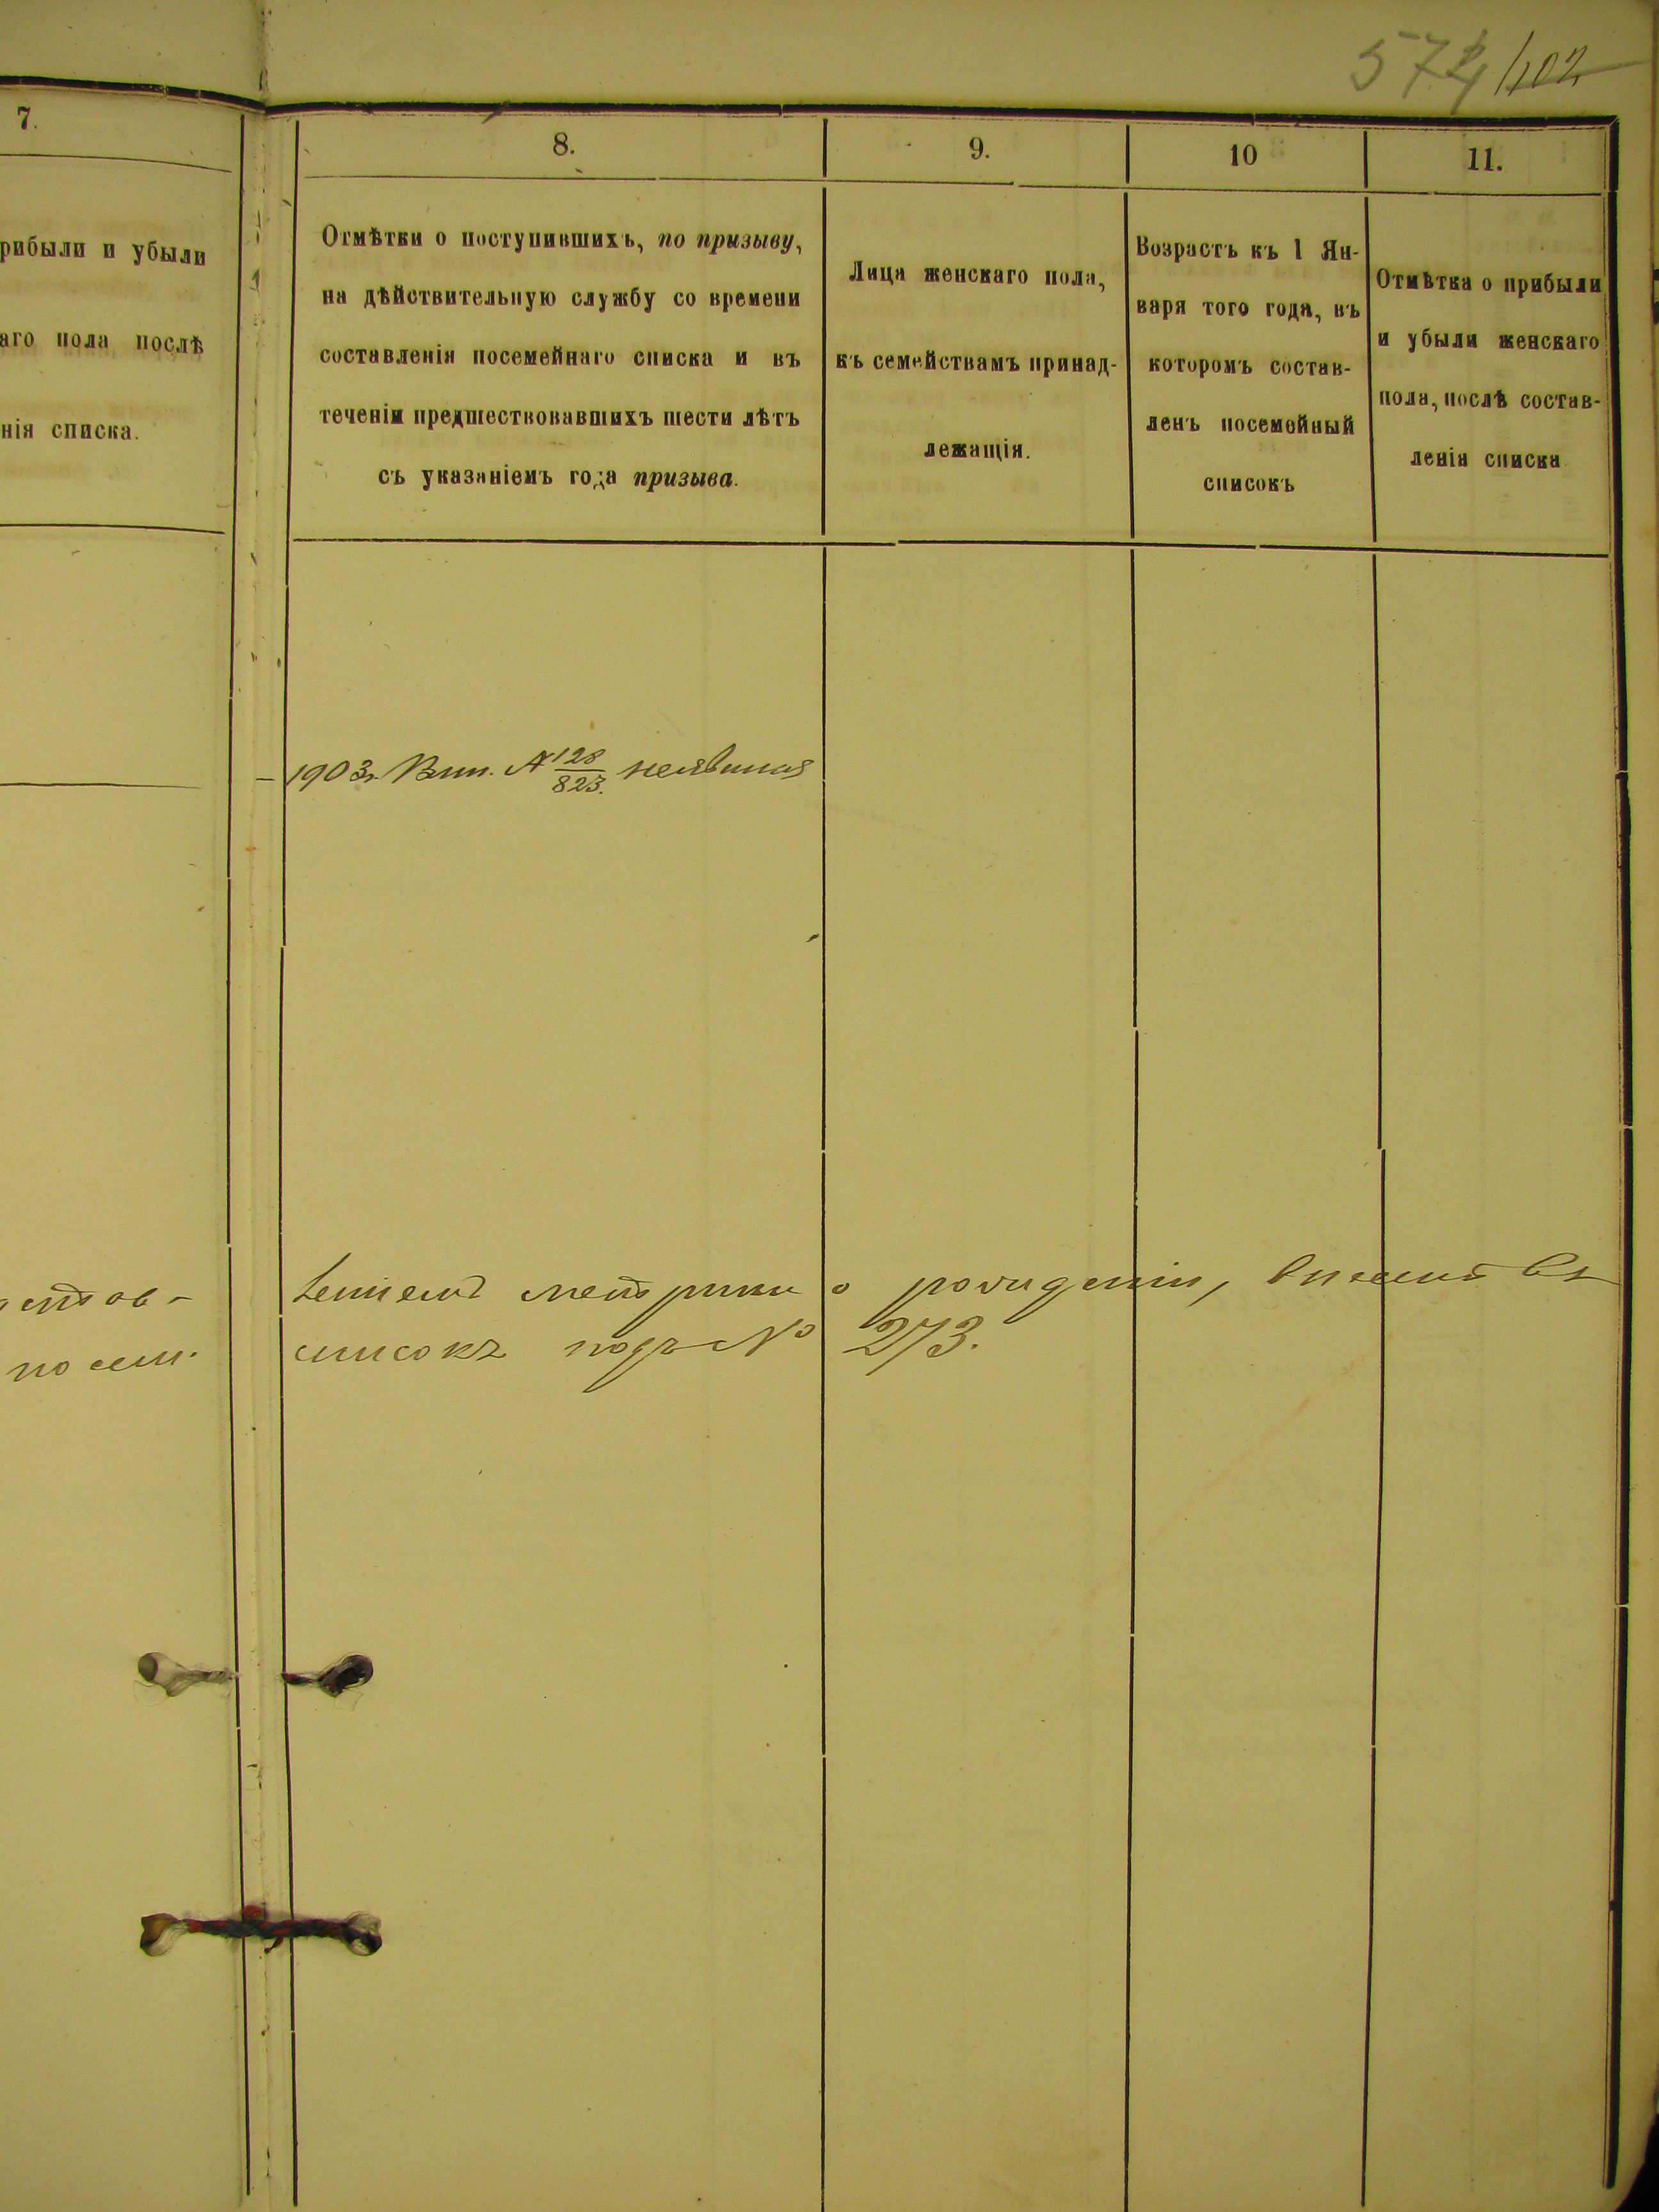 574/102
7.
8.
9.
10
11.
рибыли и убыли
аго пола послѣ
нія списка.
Отмѣтки о поступившихъ, по призыву,
на дѣйствительную службу со времени
составленія посемейнаго списка и въ
теченіи предшествовавшихъ шести лѣтъ
съ указаніемъ года призыва.
Лица женскаго пола,
къ семействамъ принад-
лежащія.
Возрастъ къ 1 Ян-
варя того года, въ
которомъ состав-
ленъ посемейный
списокъ
Отмѣтка о прибыли
и убыли женскаго
пола, послѣ состав-
ленія списка
1903г. Вып. № 128/823. неявился
леніемъ метрики о рожденіи, внесенъ въ
посем. списокъ подъ № 273.